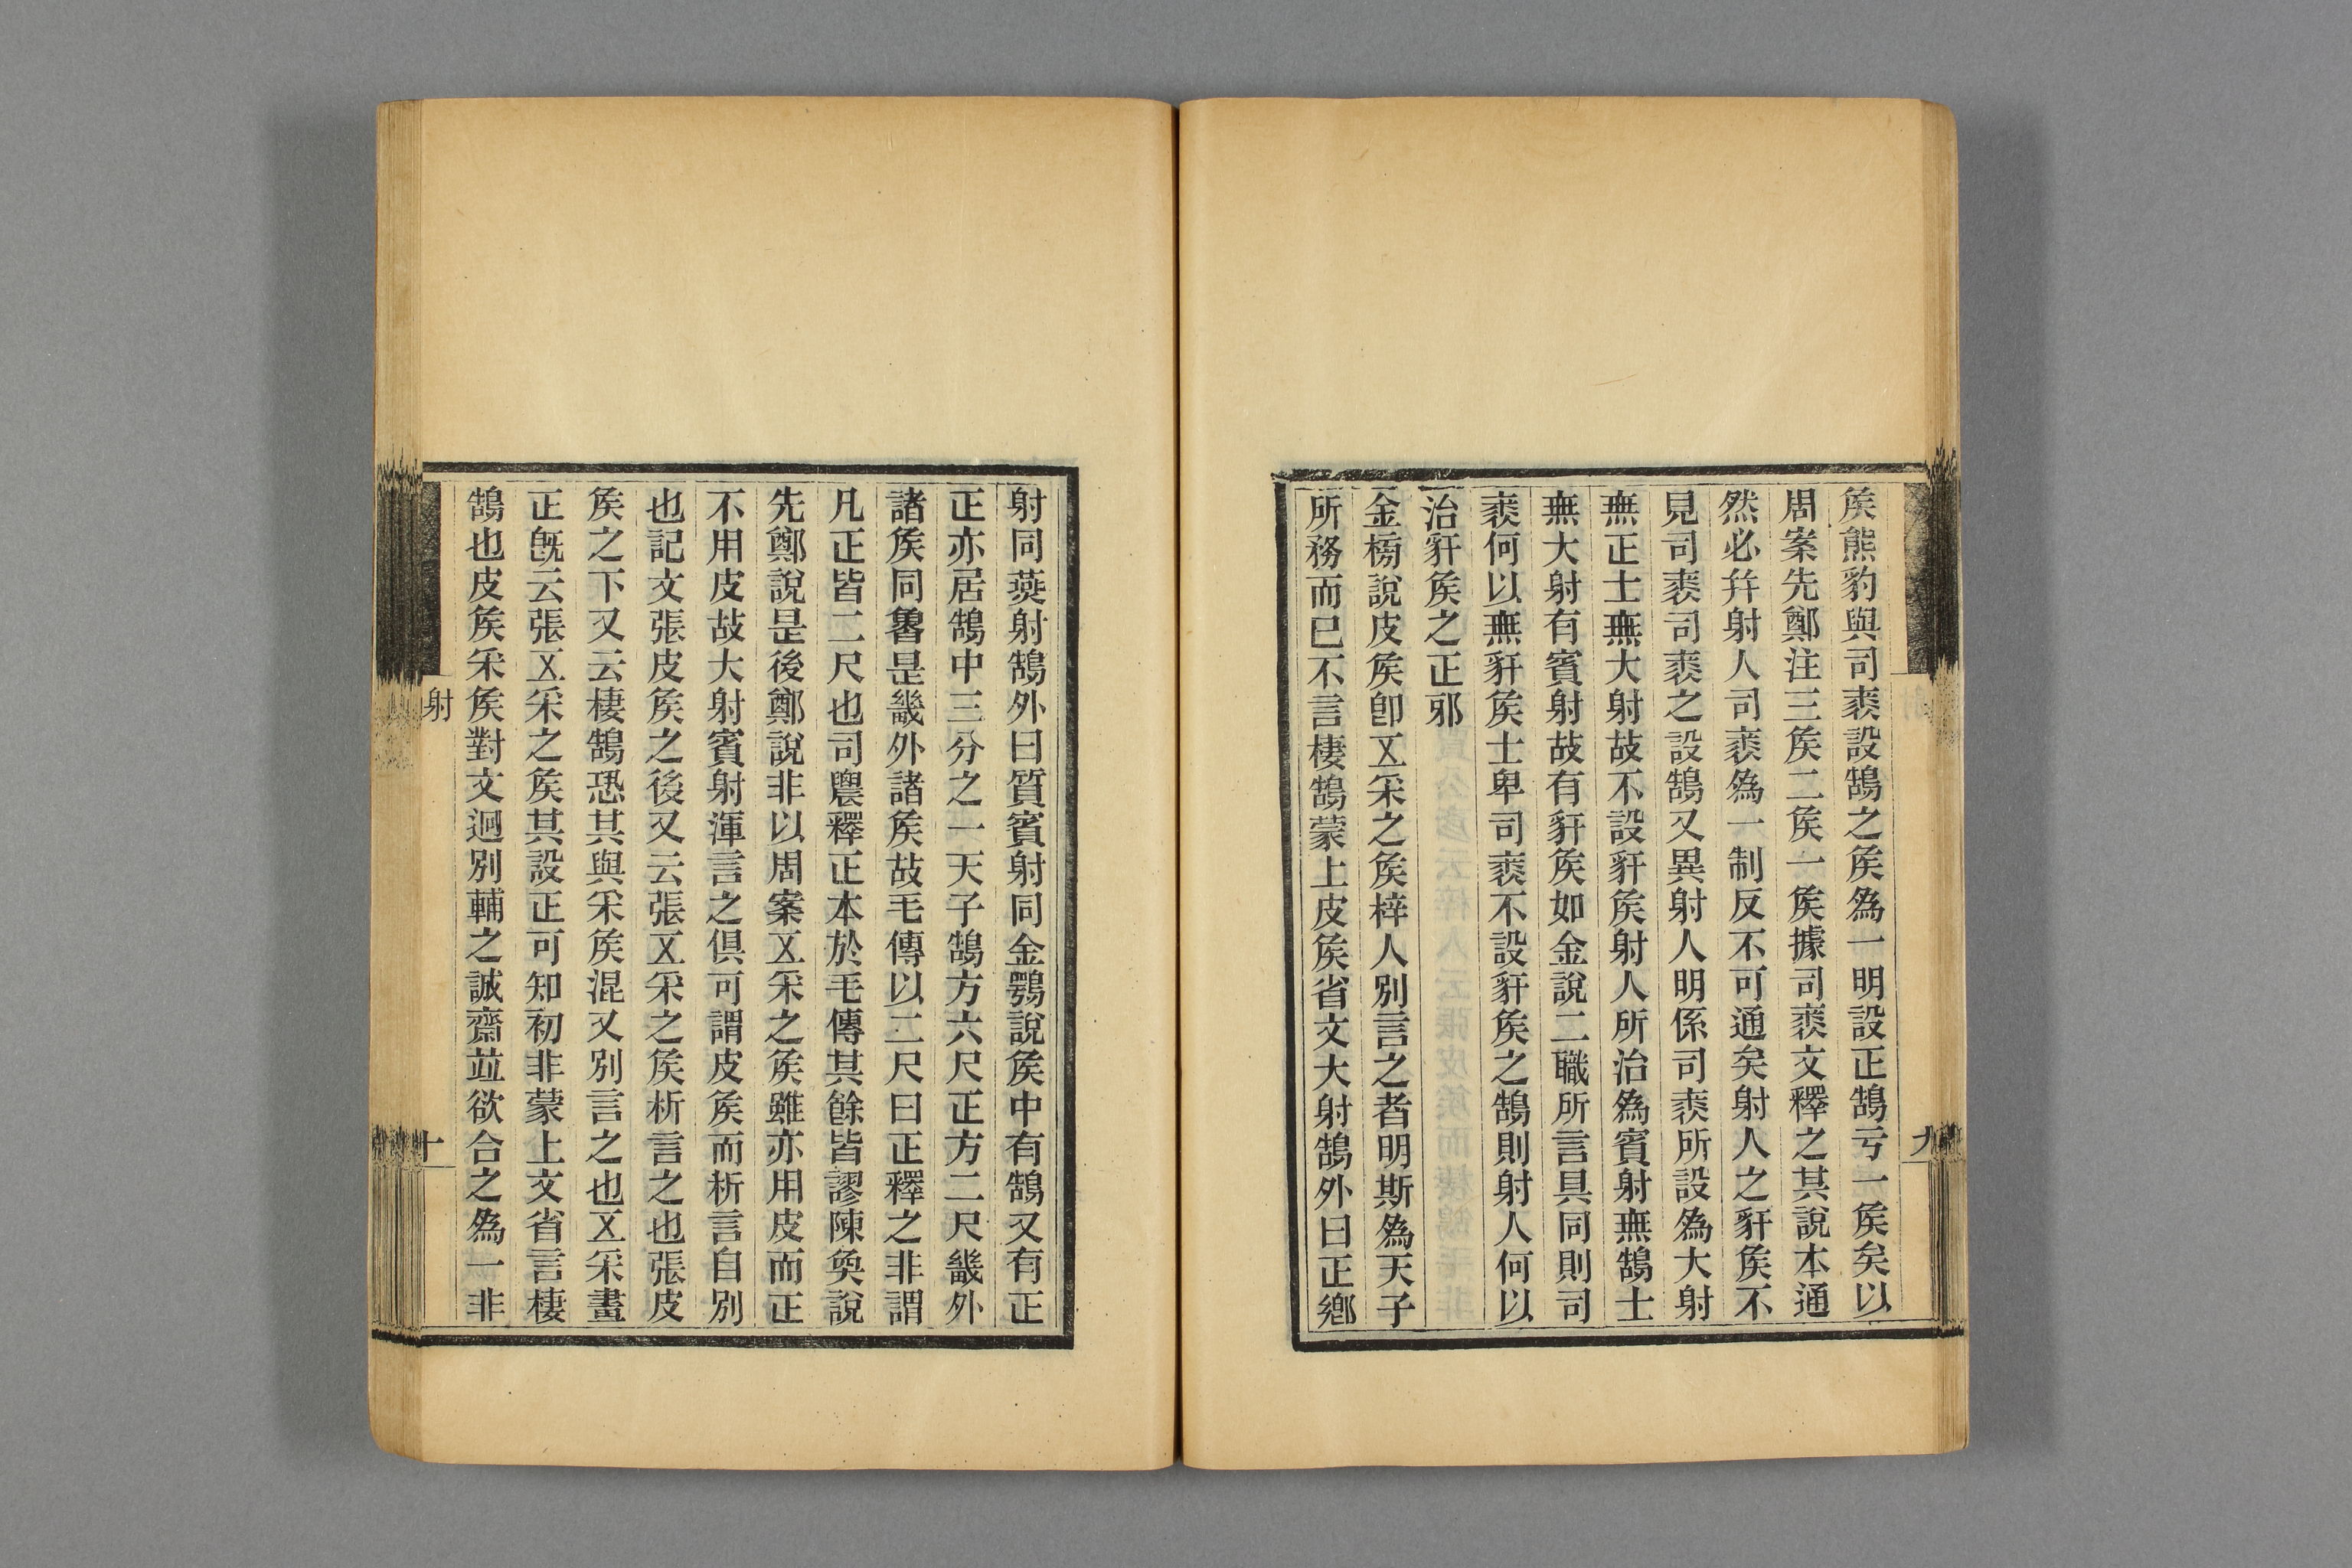 矦熊豹與司裘設鵠之矦爲一明設正鵠亏一矦矣以
周案先鄭注三矦二矦一矦據司裘文釋之其說本通
然必幷射人司裘爲一制反不可通矣射人之豻矦不
見司裘司裘之設鵠又異射人明係司裘所設爲大射
無正士無大射故不設豻矦射人所治爲賓射無鵠士
無大射有賓射故有豻矦如金說二職所言具同則司
裘何以無豻矦士卑司裘不設豻矦之鵠則射人何以
治豻矦之正邪
金榜說皮矦卽五采之矦梓人別言之者明斯爲天子
所務而已不言棲鵠蒙上皮矦省文大射鵠外曰正鄉
九
射同燕射鵠外曰質賓射同金鶚說矦中有鵠又有正
正亦居鵠中三分之一天子鵠方六尺正方二尺畿外
諸矦同魯是畿外諸矦故毛傳以二尺曰正釋之非謂
凡正皆二尺也司農釋正本於毛傳其餘皆謬陳奐說
先鄭說是後鄭說非以周案五采之矦雖亦用皮而正
不用皮故大射賓射渾言之俱可謂皮矦而析言自別
也記文張皮矦之後又云張五采之矦析言之也張皮
矦之下又云棲鵠恐其與采矦混又別言之也五采畫
正旣云張五采之矦其設正可知初非蒙上文省言棲
鵠也皮矦采矦對文迥別輔之誠齋竝欲合之爲一非
射
十